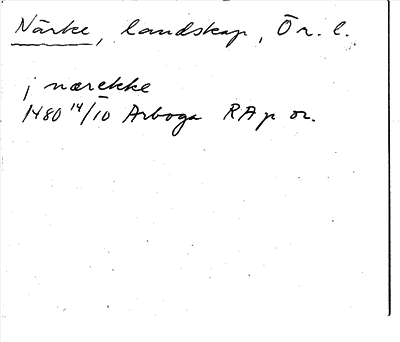 Närke, landskap, Ör. l.
j nærekke
1480 14/10 Arboga RAp or.